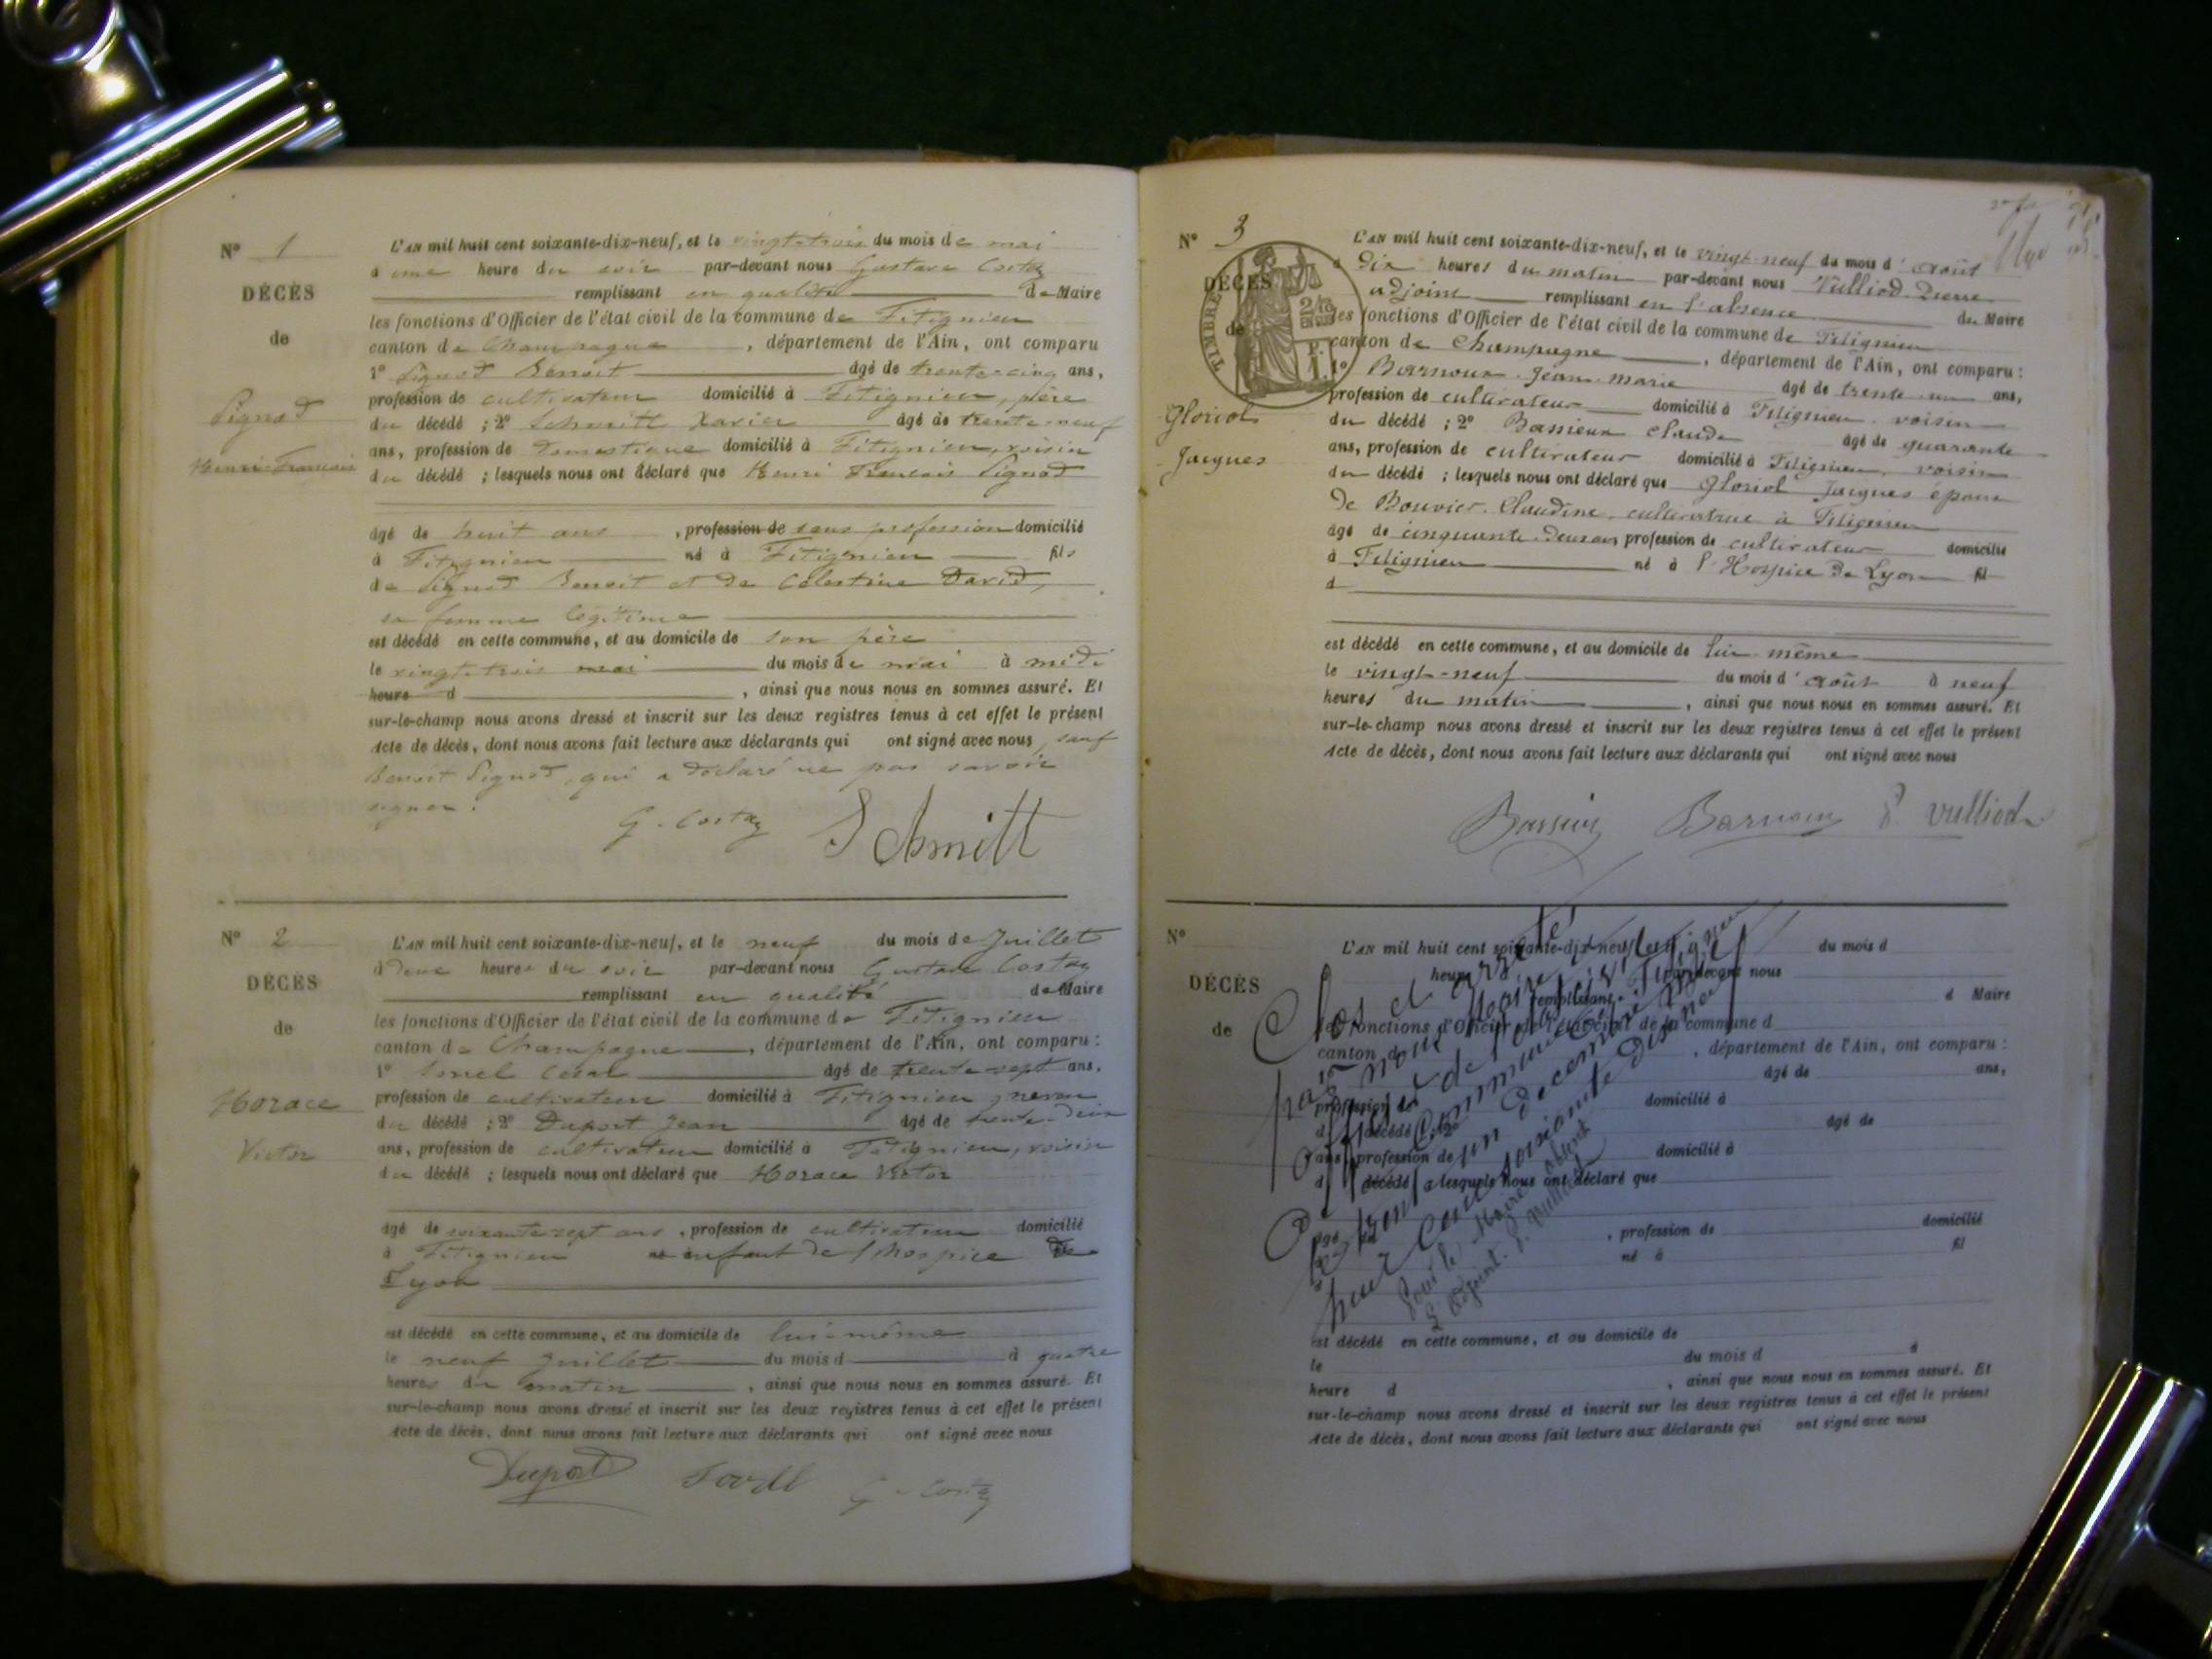 N° 1
DÉCÈS
de
Pignod
Henri-Francois
L'AN mil huit cent soixante-dix-neuf, et le vingt-trois du mois de mai
à une heure du soir par-devant nous Gustave Costaz
remplissant en qualité de Maire
les fonctions d'Officier de l'état civil de la commune de Fitignieu
canton de Champagne, département de l'Ain, ont comparu
1° Pignod Benoit âgé de trente-cinq ans,
profession de cultivateur domicilié à Fitignieu, père
du décédé ; 2° Schmitt Xavier âgé de trente-neuf
ans, profession de Domestique domicilié à Fitignieu, voisin
du décédé ; lesquels nous ont déclaré que Henri Francois Pignod
âgé de huit ans, profession de sans profession domicilié
à Fitignieu né à Fitignieu fils
de Pignod Benoit et de Célestine David,
sa femme légitime
est décédé en cette commune, et au domicile de son père
le vingt-trois mai du mois de mai à midi
heure d, ainsi que nous nous en sommes assuré. Et
sur-le-champ nous avons dressé et inscrit sur les deux registres tenus à cet effet le présent
Acte de décès, dont nous avons fait lecture aux déclarants qui ont signé avec nous, sauf
Benoit Pignod, qui a déclaré ne pas savoir
signer.
G. Costaz Schmitt
N° 2
DÉCÈS
de
Horace
Victor
L'AN mil huit cent soixante-dix-neuf, et le neuf du mois de Juillet
à Deux heures du soir par-devant nous Gustave Costaz
remplissant en qualité de Maire
les fonctions d'Officier de l'état civil de la commune de Fitignieu
canton de Champagne, département de l'Ain, ont comparu :
1° âgé de trente-sept ans,
profession de cultivateur domicilié à Fitignieu, neveu
du décédé ; 2° Duport Jean âgé de trente-deux
ans, profession de cultivateur domicilié à Fitignieu, voisin
du décédé ; lesquels nous ont déclaré que Horace Victor
âgé de soixante sept ans, profession de cultivateur domicilié
à Fitignieu né enfant de l'hospice De
Lyon
est décédé en cette commune, et au domicile de lui-même
le neuf Juillet du mois d à quatre
heures du matin, ainsi que nous nous en sommes assuré. Et
sur-le-champ nous avons dressé et inscrit sur les deux registres tenus à cet effet le présent
Acte de décès, dont nous avons fait lecture aux déclarants qui ont signé avec nous
Duport G. Costaz
N° 3
DÉCÈS
de
TIMBRE
Gloriol
Jacques
L'AN mil huit cent soixante-dix-neuf, et le vingt-neuf du mois d'août
à Dix heures du matin par-devant nous Vulliod Pierre
adjoint remplissant en l'absence du Maire
les fonctions d'Officier de l'état civil de la commune de Fitignieu
canton de Champagne, département de l'Ain, ont comparu :
1° Barnoux Jean-marie âgé de trente-un ans,
profession de cultivateur domicilié à Fitignieu voisin
du décédé ; 2° Bassieux Claude âgé de quarante
ans, profession de cultivateur domicilié à Fitignieu, voisin
du décédé ; lesquels nous ont déclaré que Gloriol Jacques époux
De Bouvier Claudine, cultivatrice à Fitignieu
âgé de cinquante-deux ans profession de cultivateur domicilié
à Fitignieu né à l'Hospice De Lyon fil
d
est décédé en cette commune, et au domicile de lui même
le vingt-neuf du mois d'août à neuf
heures du matin, ainsi que nous nous en sommes assuré. Et
sur-le-champ nous avons dressé et inscrit sur les deux registres tenus à cet effet le présent
Acte de décès, dont nous avons fait lecture aux déclarants qui ont signé avec nous
Bassieux Barnoux P. Vulliod
N°
DÉCÈS
de
L'AN mil huit cent soixante-dix-neuf, et le du mois d
heure par-devant nous
remplissant d Maire
les fonctions d'Officier de l'état civil de la commune d
canton de, département de l'Ain, ont comparu :
1° âgé de ans,
profession de domicilié à
d décédé ; 2° âgé de
ans, profession de domicilié à
d décédé ; lesquels nous ont déclaré que
âgé de, profession de domicilié
à né à fil
est décédé en cette commune, et au domicile de
le du mois d à
heure d, ainsi que nous nous en sommes assuré. Et
sur-le-champ nous avons dressé et inscrit sur les deux registres tenus à cet effet le présent
Acte de décès, dont nous avons fait lecture aux déclarants qui ont signé avec nous
Clos et arrêté
par nous Maire
officier de l'état civil
commune de Fitignieu
trente un Décembre mil
huit cent soixante dix neuf
Pour le Maire absent
L'adjoint. P. Vulliod